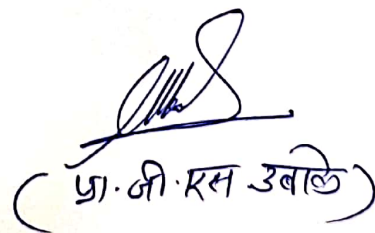 ( प्रा. जी. एस उबाळे )